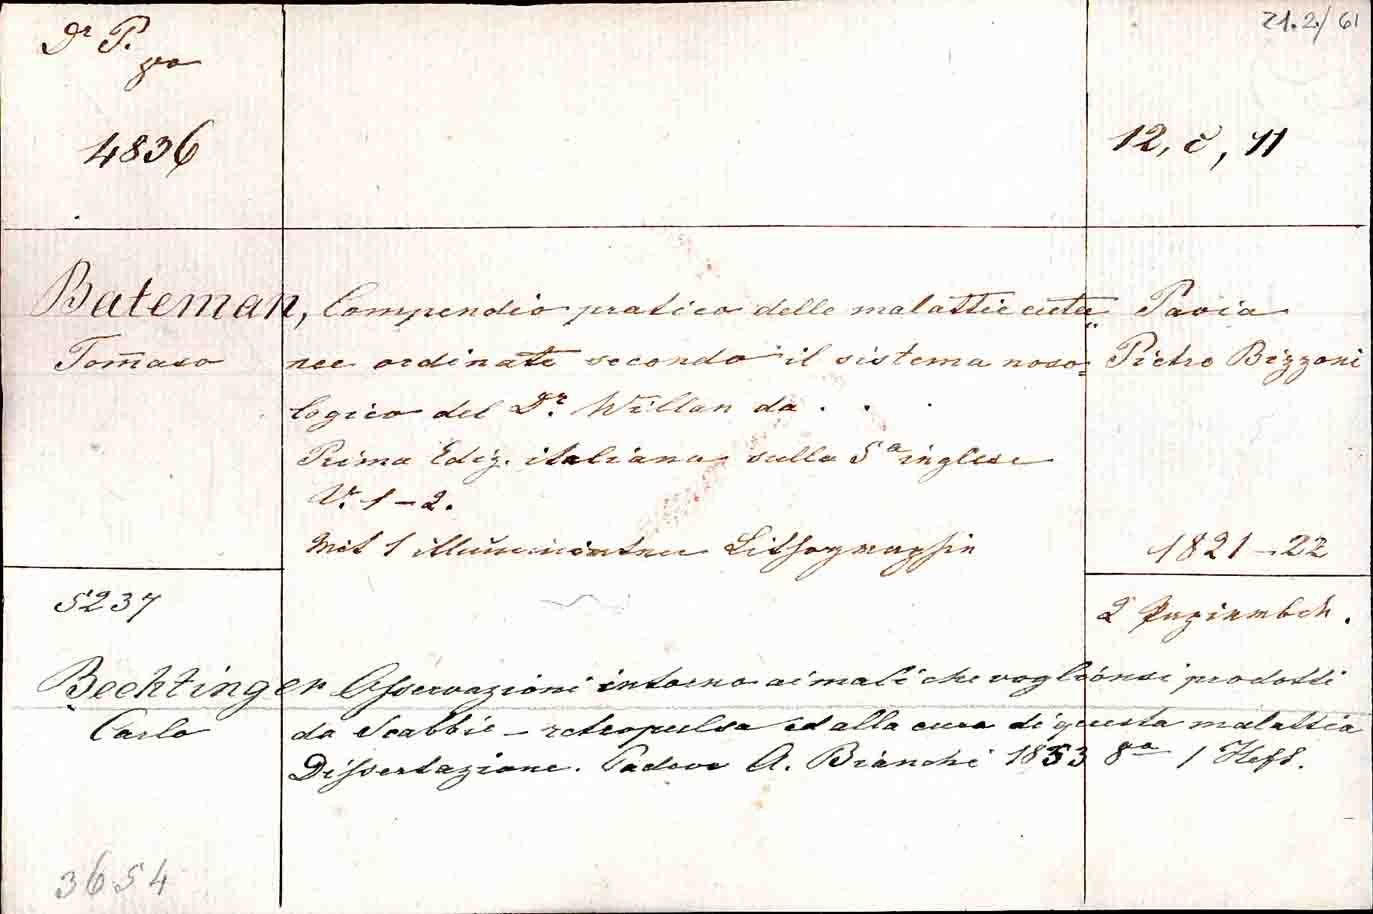 Dr P.
8vo
4836
21.2./61
12, c, 11
Bateman,
Tomaso
Compendio pratico delle malattie cuta=
nee ordinate secondo il sistema noso=
logico del Dr. Willan da . . .
Prima Ediz. italiana sulla 5a inglese
V. 1 – 2.
Mit 1 illuminirten Lithographie
Pavia
Pietro Bizzoni
1821 – 22
2 Papiermbch.
5237
Bechtinger
Carlo
Osservazioni intorno ai mali che voglionsi prodotti
da Scabbie – retropulsa ed alla cura di questa malattia
Dissertazione. Padova A. Bianchi 1833 8vo 1 Heft.
3654